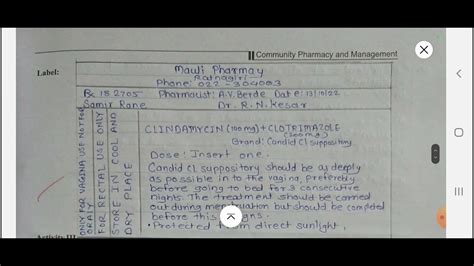 Community Pharmacy and Management
Label:
Mauli Pharmay
Ratnagiri
Phone: 022-304003
Rx 182705 Pharmacist: A.V. Berde Date: 13/10/22
Samir Rane Dr. R.N. Kesar
CLINDAMYCIN (100mg) + CLOTRIMAZOLE
(200mg)
Brand: Candid Cl suppository
Dose: Insert one.
Candid Cl suppository should be as deeply
as possible in to the vagina, preferebly
before going to bed for 3 consecutive
nights. The treatment should be carried
out during menstruation but should be completed
before this signs.
• Protected from direct sunlight,
ONLY FOR VAGINA USE NOT FOR
ORALY
FOR RECTAL USE ONLY
STORE IN COOL AND
DRY PLACE
Activity III